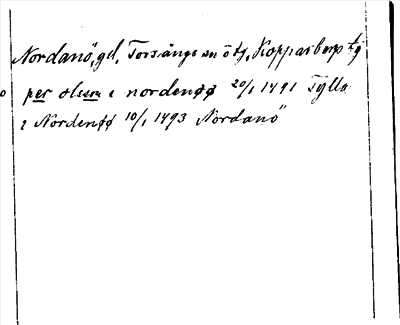 Nordanö, gd, Torsångs sn ö tg, Kopparbergs tg
per olsson i nordenøø 20/1 1491 Tylla
i Nordenøø 10/1 1493 Nordanö"